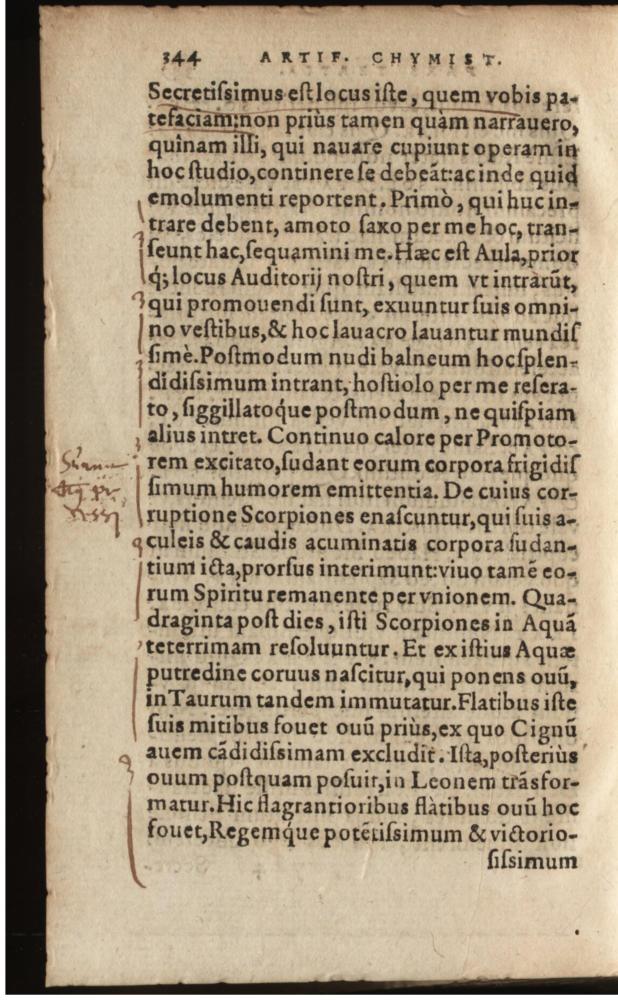 344 ARTIF. CHYMIST.
Secretiſsimus eſt locus iſte, quem vobis pa-
tefaciam: non priùs tamen quàm narrauero,
quînam illi, qui nauare cupiunt operam in
hoc ſtudio, continere ſe debeãt: ac inde quid
emolumenti reportent. Primò, qui huc in-
trare debent, amoto ſaxo per me hoc, tran-
ſeunt hac, ſequamini me. Hæc eſt Aula, prior
q́; locus Auditorij noſtri, quem vt intrârũt,
qui promouendi ſunt, exuuntur ſuis omni-
no veſtibus, & hoc lauacro lauantur mundiſ
ſimè. Poſtmodum nudi balneum hoc ſplen-
didiſsimum intrant, hoſtiolo per me reſera-
to, ſiggillatoq́ue poſtmodum, ne quiſpiam
alius intret. Continuo calore per Promoto-
rem excitato, ſudant eorum corpora frigidiſ
ſimum humorem emittentia. De cuius cor-
ruptione Scorpiones enaſcuntur, qui ſuis a-
culeis & caudis acuminatis corpora ſudan-
tium icta, prorſus interimunt: viuo tamẽ eo-
rum Spiritu remanente per vnionem. Qua-
draginta poſt dies, iſti Scorpiones in Aquã
teterrimam reſoluuntur. Et ex iſtius Aquæ
putredine coruus naſcitur, qui ponens ouũ,
in Taurum tandem immutatur. Flatibus iſte
ſuis mitibus fouet ouũ priùs, ex quo Cignũ
auem cãdidiſsimam excludit. Iſta, poſteriùs
ouum poſtquam poſuit, in Leonem trãsfor-
matur. Hic flagrantioribus flàtibus ouũ hoc
fouet, Regemq́ue potẽtiſsimum & victorio-
ſiſsimum